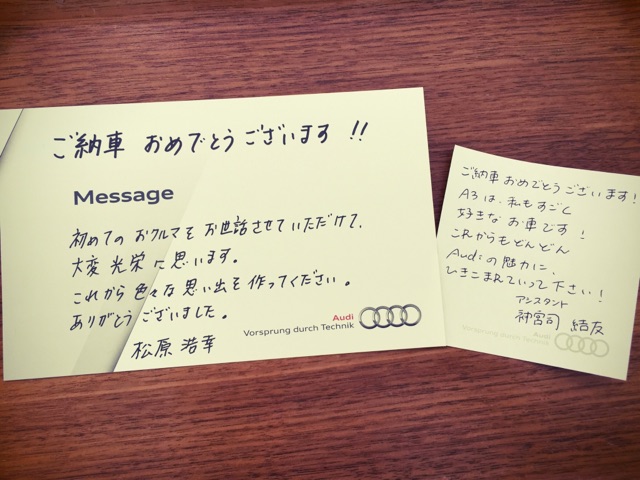 ご納車 おめでとうございます!!
Message
初めての おクルマを お世話させていただけて、
大変 光栄に思います。
これから 色々な 思い出を 作ってください。
ありがとうございました。
松原 浩幸
Audi
Vorsprung durch Technik
ご納車 おめでとうございます!
A3は、私もすごく
好きな お車です!
これからもどんどん
Audiの魅力に、
ひきこまれていって下さい!
アシスタント
神宮司 結友
Audi
Vorsprung durch Technik